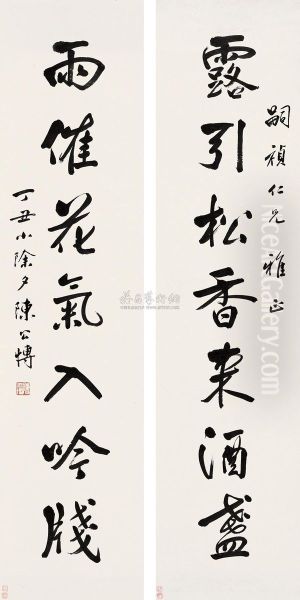 露引松香來酒盞
嗣禎仁兄雅正
雨催花氣入吟牋
丁丑小除夕陳公博